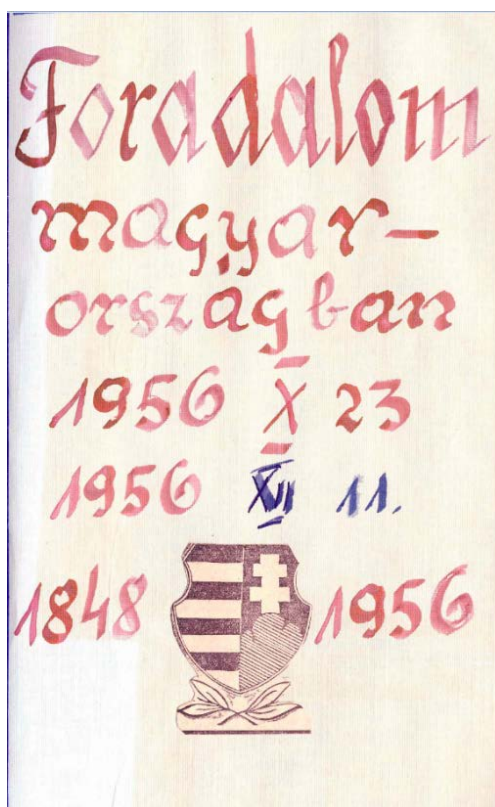 Foradalom
magyar-
országban
1956 X 23
1956 11.
1848 1956